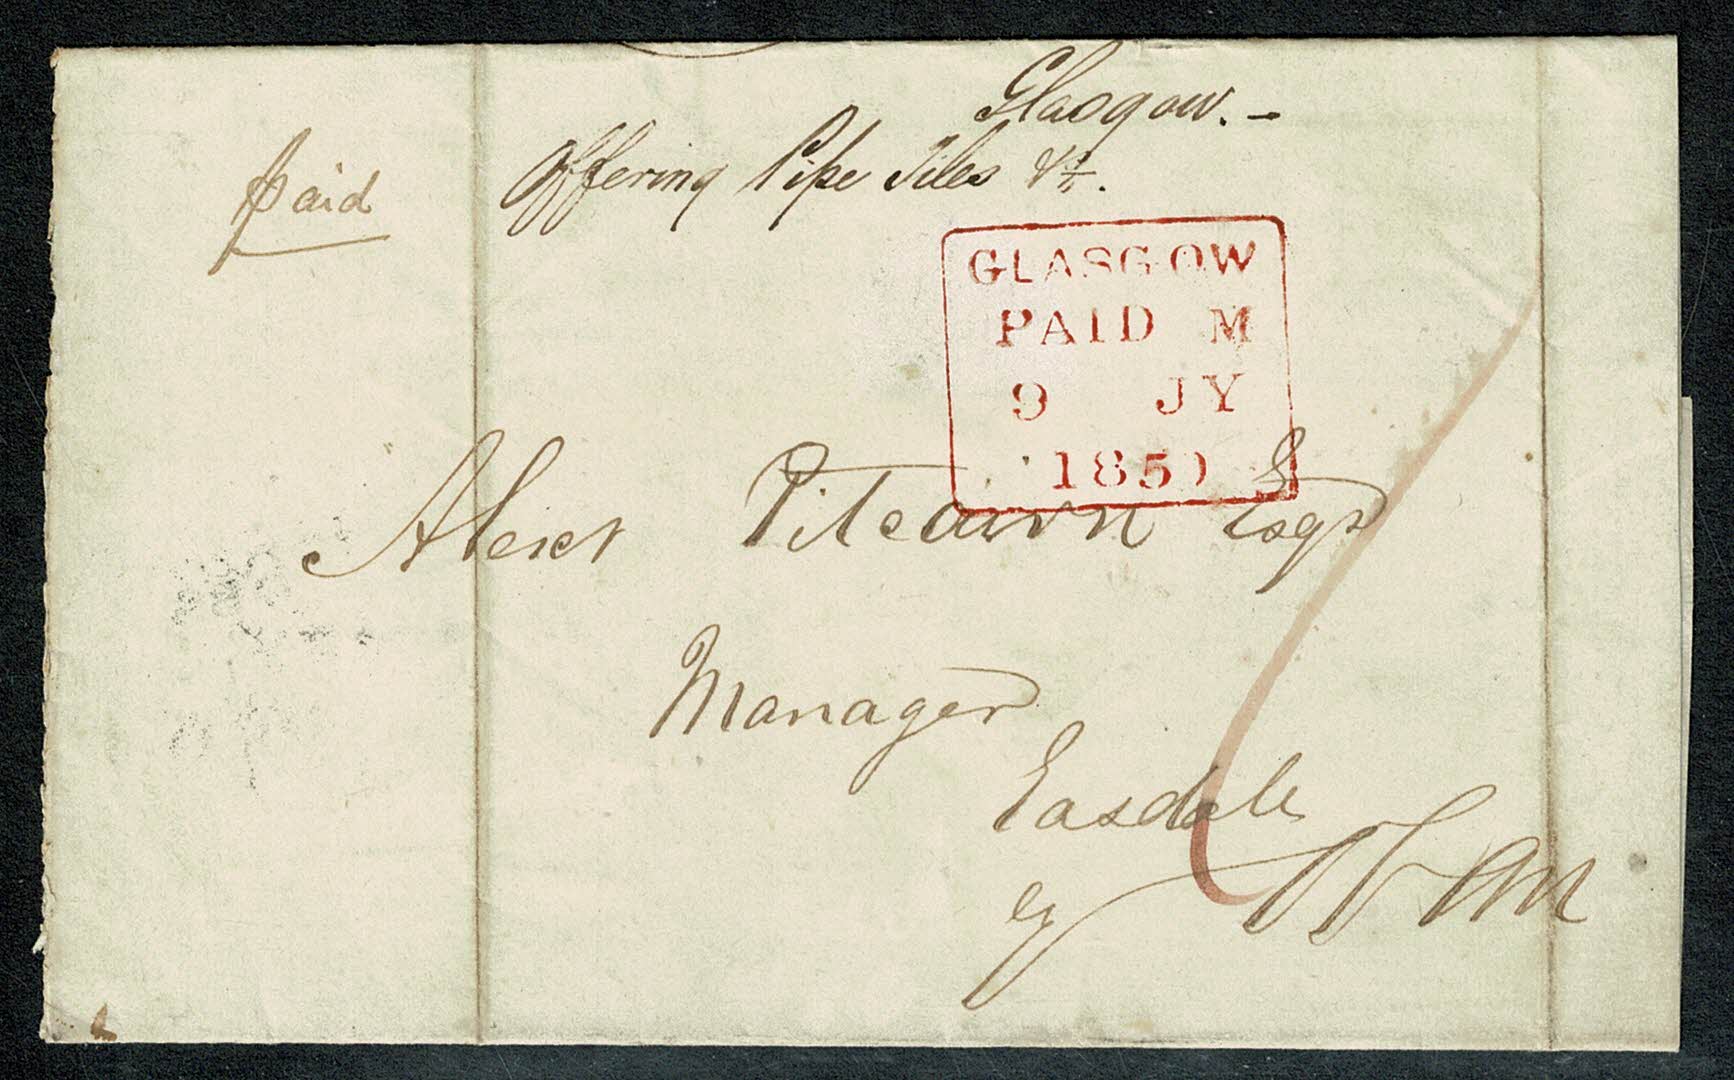 Glasgow. –
Offering Pipe Tiles &c.
paid
GLASGOW
PAID M
9 JY
1850
Alexr Pitcairn Esqr
Manager
Easdale
by Oban